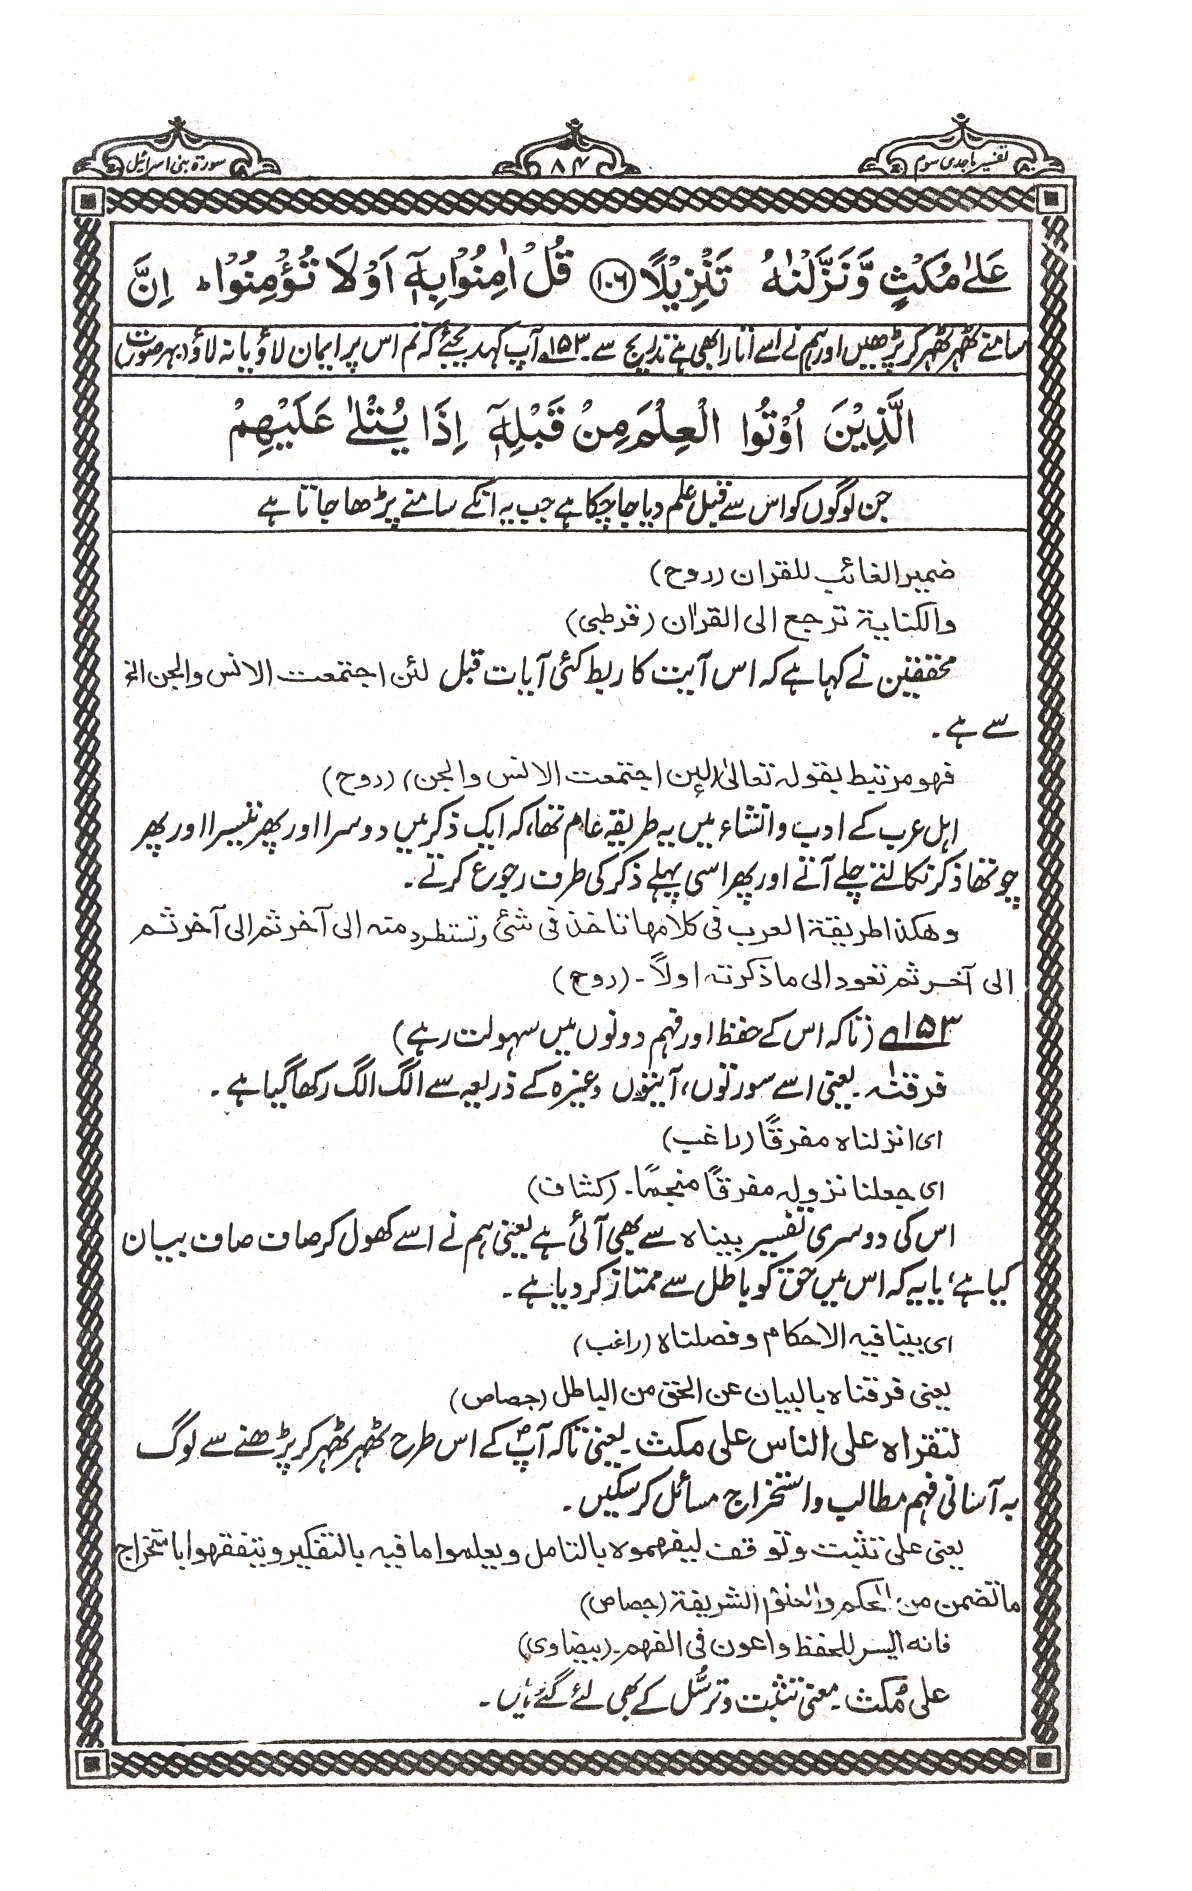 تفسیر ماجدی سوم
۸۴
سورۃ بنی اسرائیل
عَلٰى مُكْثٍ وَّنَزَّلْنٰهُ تَنْزِيْلًا ﴿۱۰۶﴾ قُلْ اٰمِنُوْا بِهٖٓ اَوْ لَا تُؤْمِنُوْا ؕ اِنَّ
سامنے ٹھہر ٹھہر کر پڑھیں اور ہم نے اسے اتارا بھی ہے تدریج سے ۱۵۳؎ آپ کہہ دیجئے کہ تم اس پر ایمان لاؤ یا نہ لاؤ (بہر صورت)
الَّذِيْنَ اُوْتُوا الْعِلْمَ مِنْ قَبْلِهٖٓ اِذَا يُتْلٰى عَلَيْهِمْ
جن لوگوں کو اس سے قبل علم دیا جا چکا ہے جب یہ انکے سامنے پڑھا جاتا ہے
ضمیر الغائب للقران (روح)
والکنایۃ ترجع الی القرآن (قرطبی)
محققین نے کہا ہے کہ اس آیت کا ربط کئی آیات قبل لئن اجتمعت الانس والجن الخ
سے ہے۔
فھو مرتبط بقولہ تعالیٰ (لئن اجتمعت الانس والجن) (روح)
اہل عرب کے ادب و انشاء میں یہ طریقہ عام تھا، کہ ایک ذکر میں دوسرا اور پھر تیسرا اور پھر
چوتھا ذکر نکالتے چلے آتے اور پھر اسی پہلے ذکر کی طرف رجوع کرتے۔
وھکذا طریقۃ العرب فی کلامھا تاخذ فی شئ وتستطرد منہ الی آخر ثم الی آخر ثم
الی آخر ثم تعود الی ما ذکرتہ اولاً۔ (روح)
۱۵۳؎ (تاکہ اس کے حفظ اور فہم دونوں میں سہولت رہے)
فرقنٰہ۔ یعنی اسے سورتوں، آیتوں وغیرہ کے ذریعہ سے الگ الگ رکھا گیا ہے۔
ای انزلناہ مفرقًا (راغب)
ای جعلنا نزولہ مفرقًا منجمًا۔ (کشاف)
اس کی دوسری تفسیر بیناہ سے بھی آئی ہے یعنی ہم نے اسے کھول کر صاف صاف بیان
کیا ہے؛ یا یہ کہ اس میں حق کو باطل سے ممتاز کر دیا ہے۔
ای بینا فیہ الاحکام وفصلناہ (راغب)
یعنی فرقناہ بالبیان عن الحق من الباطل (جصاص)
لتقراہ علی الناس علی مکث۔ یعنی تاکہ آپؐ کے اس طرح ٹھہر ٹھہر کر پڑھنے سے لوگ
بہ آسانی فہم مطالب و استخراج مسائل کر سکیں۔
یعنی علی تثبت وتوقف لیفھموہ بالتامل ویعلموا ما فیہ بالتفکیر ویتفقھوا باستخراج
ما تضمن من الحکم والعلوم الشریفۃ (جصاص)
فانہ ایسر للحفظ واعون فی الفھم۔ (بیضاوی)
علی مُکث۔ معنی تثبت و ترسُّل کے بھی لئے گئے ہیں۔